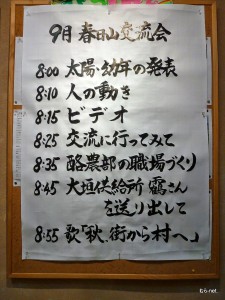 9月 春日山交流会
8:00 太陽・幼年の発表
8:10 人の動き
8:15 ビデオ
8:25 交流に行ってみて
8:35 酪農部の職場づくり
8:45 大垣供給所 靍さん
を送り出して
8:55 歌「秋.街から村へ」
むら-net